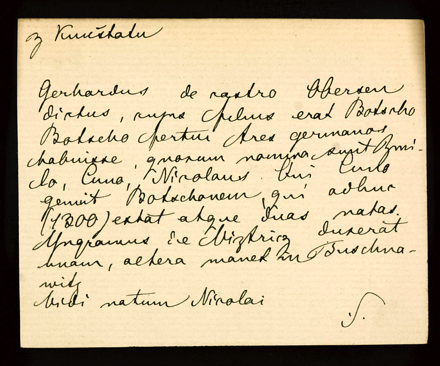 z Kunštatu
Gerhardus de castro Obersen
dictus, cujus filius erat Botscho
Botscho fertur tres germanos
habuisse, quorum nomina sunt Smi-
lo, Cuno, Nicolaus. Uni Cuno
genuit Botschonem, qui adhuc
(1300) extat atque duas natas.
Yngramus de duxerat
unam, altera manet in Tuschna-
witz
Vidi natum Nicolai
S.